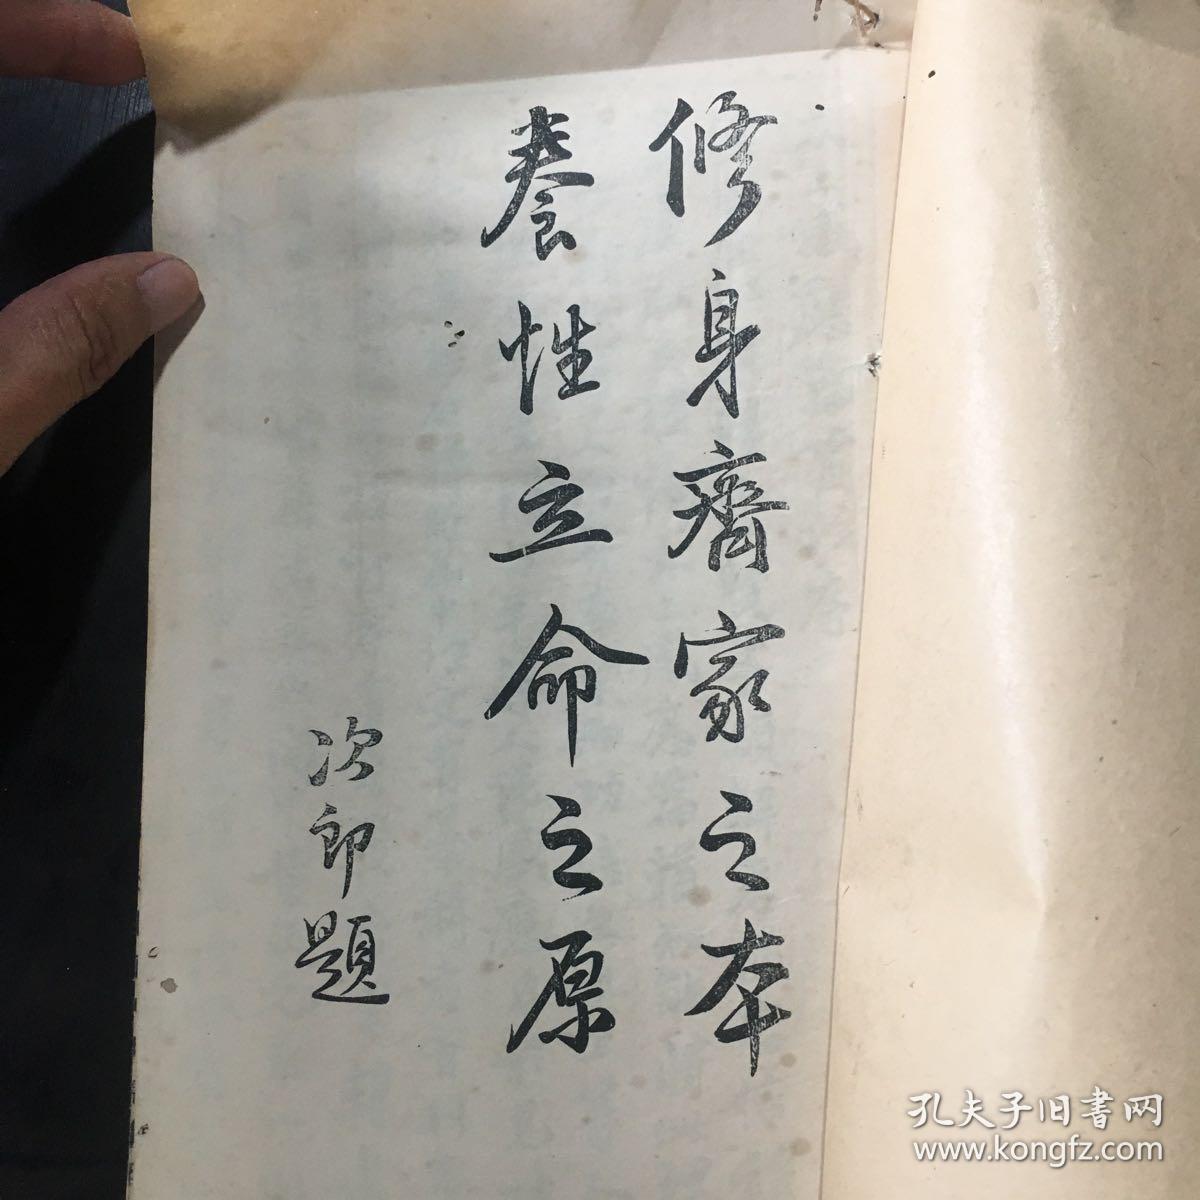 修身齊家之本
養性立命之原
次郎題
孔夫子旧書网
www.kongfz.com